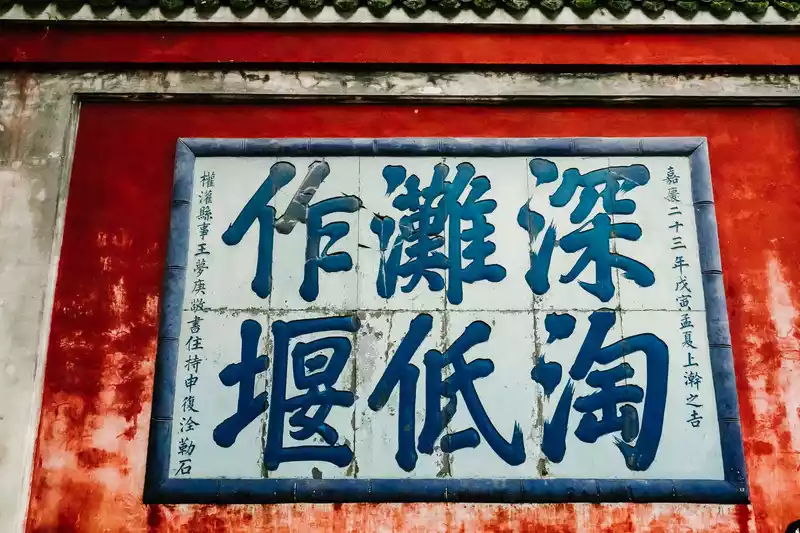 嘉慶二十三年戊寅孟夏上澣之吉
深淘
灘低
作堰
權灌縣事王夢庚敬書住持申復勒石